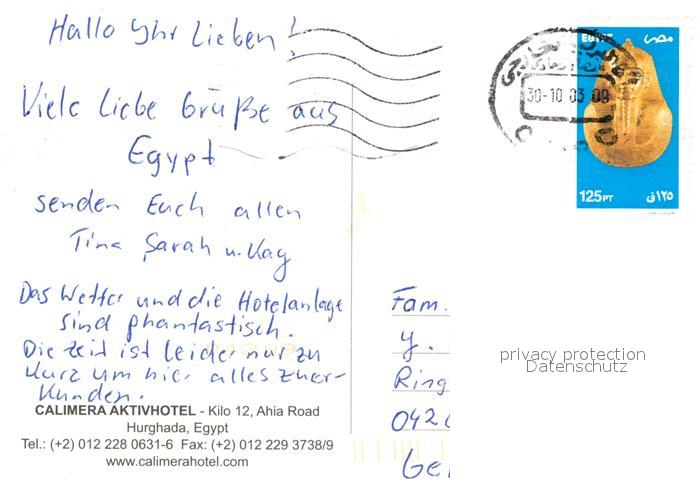 Hallo Ihr Lieben!
Viele liebe Grüße aus
Egypt
senden Euch allen
Tina Sarah u. Kay
Das Wetter und die Hotelanlage
sind phantastisch.
Die Zeit ist leider nur zu
kurz um hier alles zu er-
kunden.
CALIMERA AKTIVHOTEL - Kilo 12, Ahia Road
Hurghada, Egypt
Tel.: (+2) 012 228 0631-6 Fax: (+2) 012 229 3738/9
www.calimerahotel.com
EGYPT مصر
30-10 03 09
125PT ١٢٥ق
Fam.
y.
Ring
042
Ge
privacy protection
Datenschutz